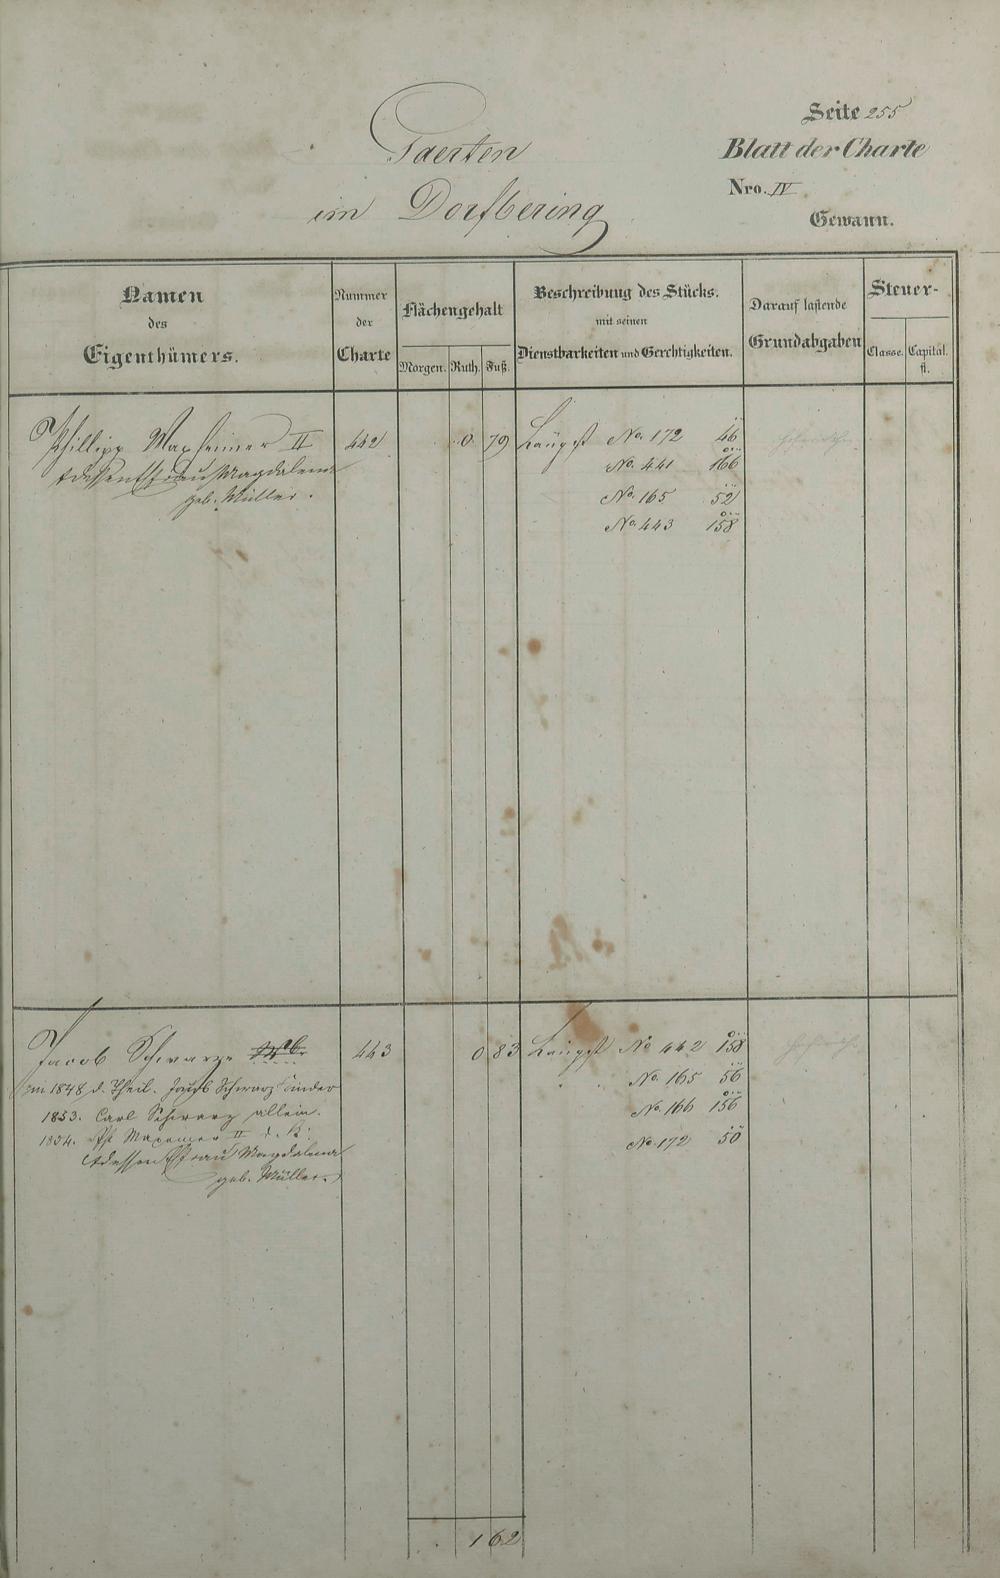 Seite 255
Gaerten
Blatt der Charte
Nro. IV
im Dorfbering
Gewann.
Namen des Eigenthümers.
Nummer der Charte
Flächengehalt
Morgen. Ruth. Fuß.
Beschreibung des Stücks.
mit seinen
Dienstbarkeiten und Gerechtigkeiten.
Darauf lastende Grundabgaben
Steuer-
Classe. Capital. fl.
Phillipp Maxheimer II 442 0 79 Längst No. 172 46
u dessen Ehefrau Magdalena No. 441 166
geb. Müller. No. 165 52
No. 443 158
Jacob Schwarze 443 0 83 Längst No 442 158
im 1848 d. Theil. Jacob Schwarz Kinder No. 165 56
1853. Carl Schwarz allein. No. 166 156
1854. Ph Maxemer II No. 172 50
u dessen Ehefrau Magdalena
geb. Müller.
1 62